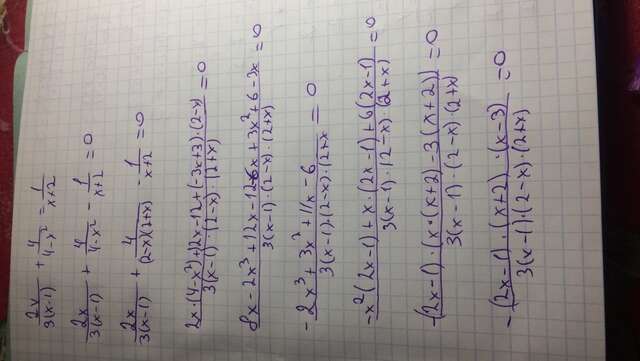 2x/3(x-1) + 4/4-x² = 1/x+2
2x/3(x-1) + 4/4-x² - 1/x+2 = 0
2x/3(x-1) + 4/(2-x)(2+x) - 1/x+2 = 0
2x·(4-x²)+12x-12+(-3x+3)·(2-x)/3(x-1)·(2-x)·(2+x) = 0
8x-2x³+12x-12-6x+3x²+6-3x/3(x-1)·(2-x)·(2+x) = 0
-2x³+3x²+11x-6/3(x-1)·(2-x)·(2+x = 0
-x²(2x-1)+x·(2x-1)+6(2x-1)/3(x-1)·(2-x)·(2+x) = 0
-(2x-1)·(x·(x+2)-3(x+2))/3(x-1)·(2-x)·(2+x) = 0
-(2x-1)·(x+2)·(x-3)/3(x-1)·(2-x)·(2+x) = 0